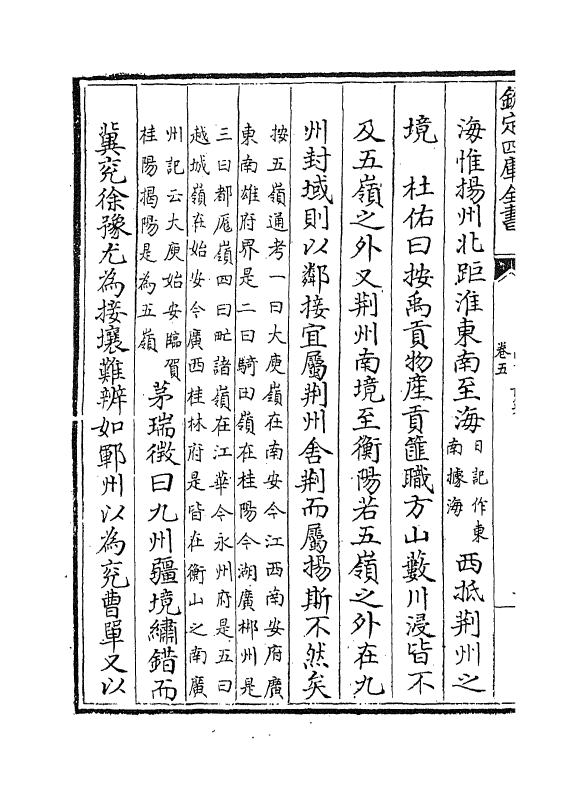 欽定四庫全書
卷五
海惟揚州北距淮東南至海日記作東南據海西抵荆州之
境　杜佑曰按禹貢物產貢篚職方山藪川浸皆不
及五嶺之外又荆州南境至衡陽若五嶺之外在九
州封域則以鄰接宜屬荆州舍荆而屬揚斯不然矣
按五嶺通考一曰大庾嶺在南安今江西南安府廣
東南雄府界是二曰騎田嶺在桂陽今湖廣郴州是
三曰都龎嶺四曰甿諸嶺在江華今永州府是五曰
越城嶺在始安今廣西桂林府是皆在衡山之南廣
州記云大庾始安臨賀
桂陽揭陽是為五嶺
茅瑞徴曰九州疆境繡錯而
冀兖徐豫尤為接壤難辨如鄆州以為兖曹單又以